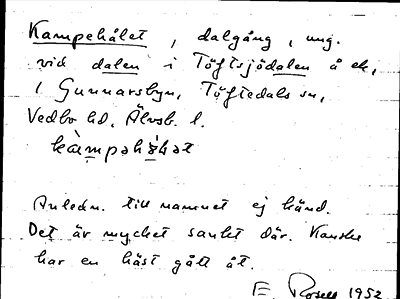 Kampehålet, dalgång, ung.
vid dalen i Töftsjödalen å ek,
i Gunnarsbyn, Töftedals sn,
Vedbo hd, Älvsb. l.
kàmpəhó̀ət
Anledn. till namnet ej känd.
Det är mycket sankt där. Kanske
har en häst gått åt.
E. Rosell 1952